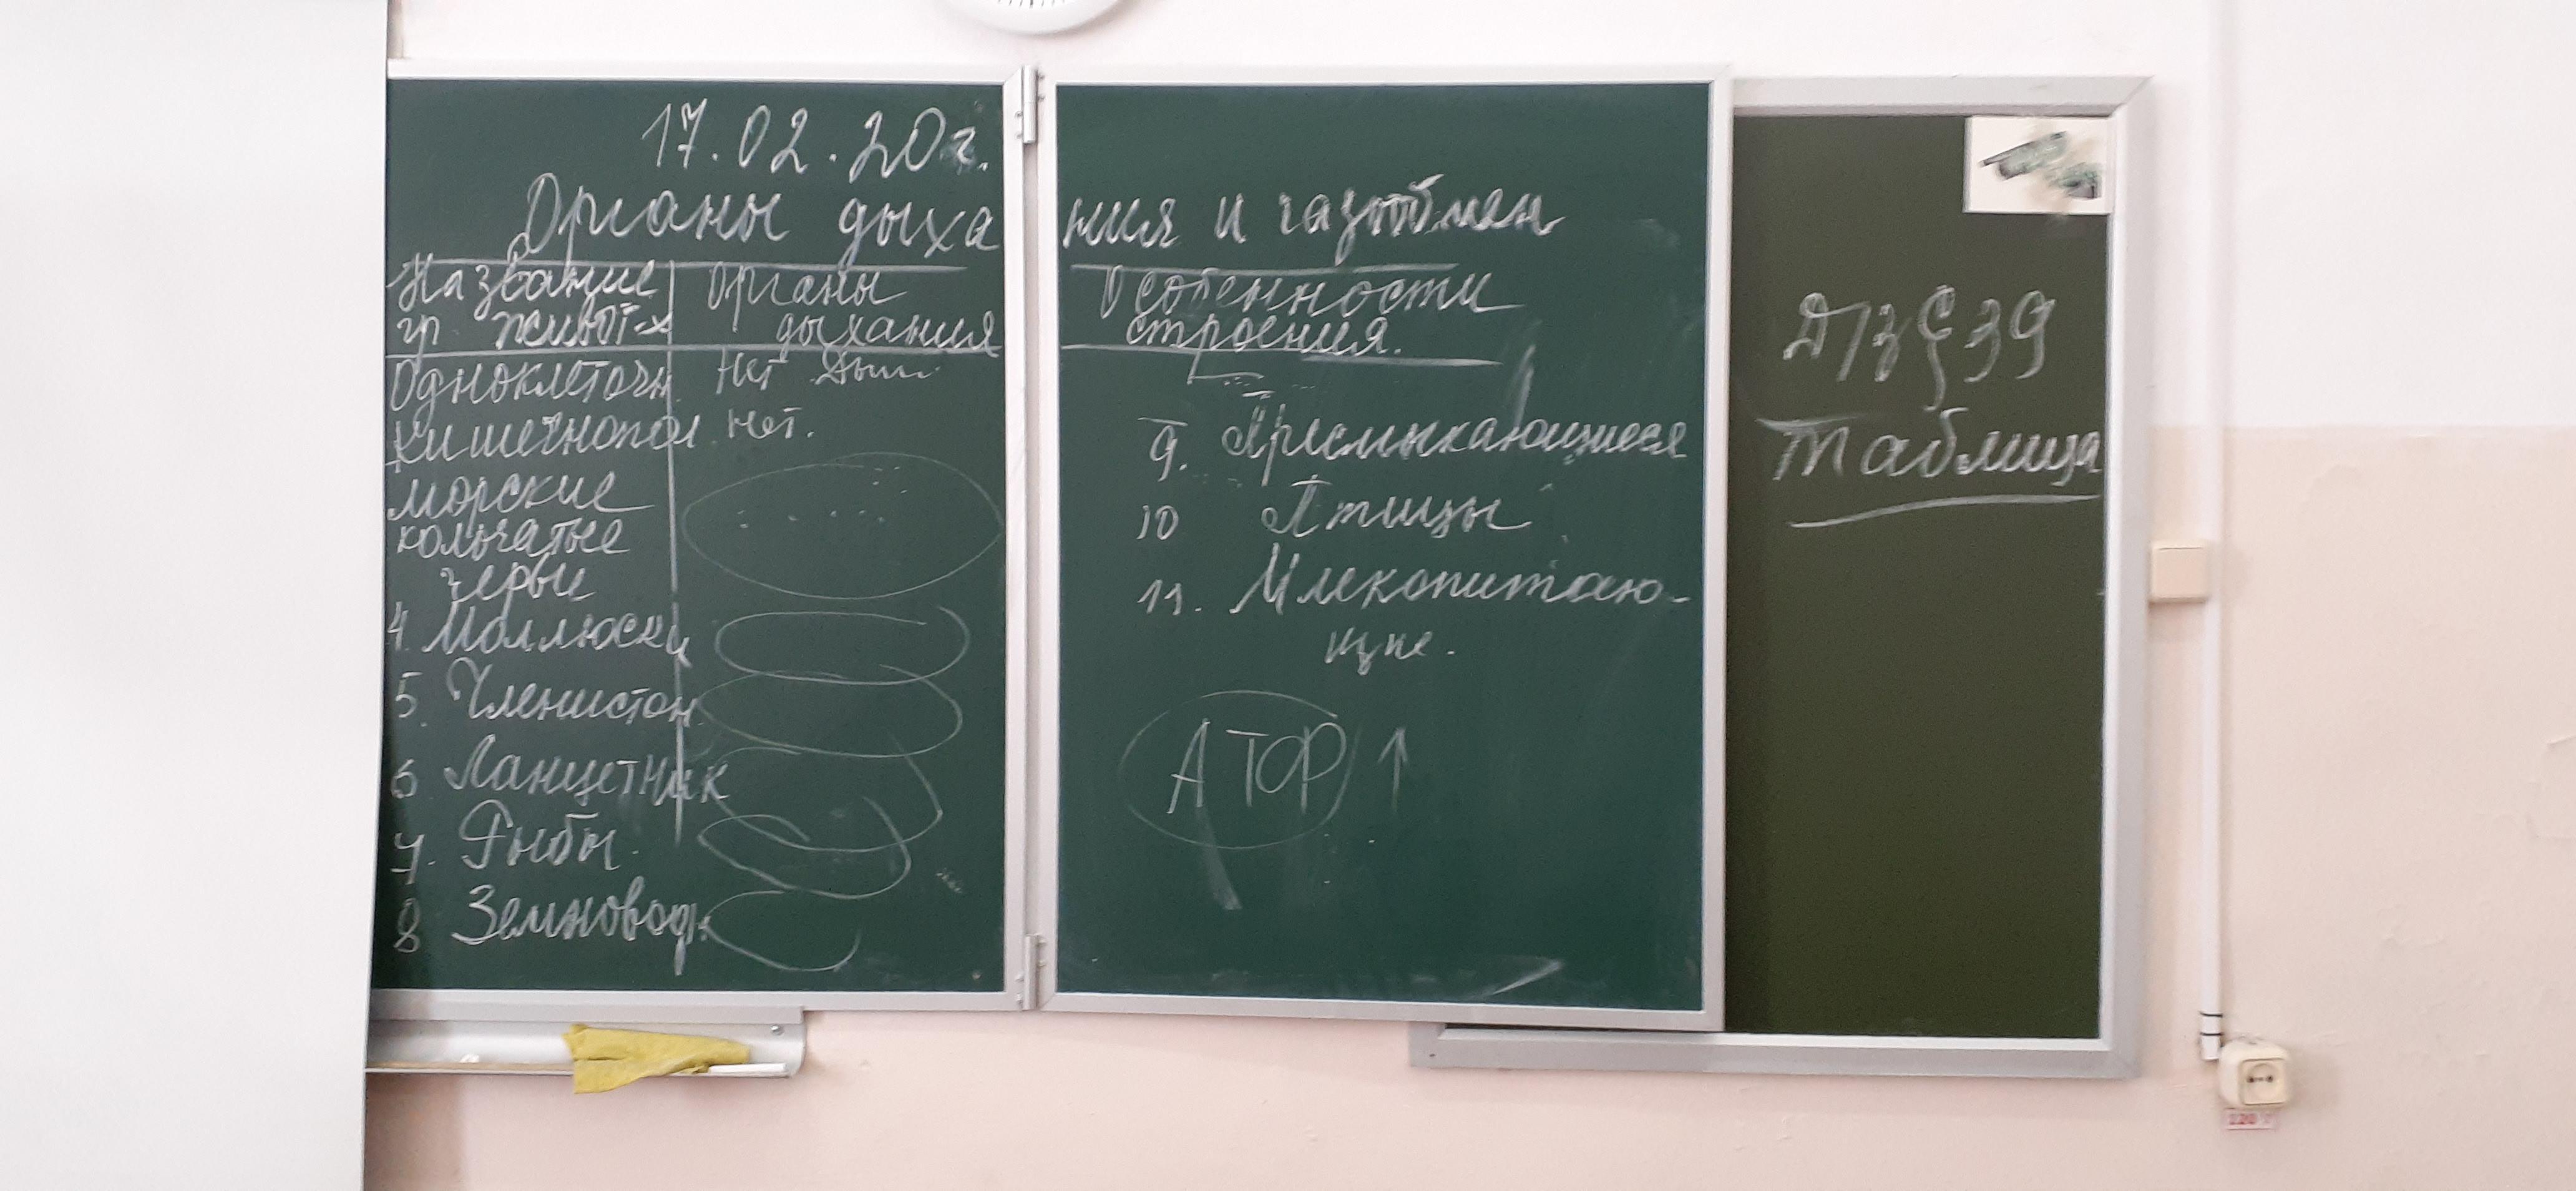 17.02.20г.
Органы дыхания и газообмен
Название органы Особенности
гр живот-х дыхания строения.
Одноклеточн нет
кишечнопол нет.
морские
кольчатые
черви
4. Моллюски
5. Членистон.
6 Ланцетник
7. Рыбы.
8 Земноводн
9. Пресмыкающиеся
10 Птицы
11. Млекопитаю-
щие.
АТФ ↑
Д/з § 39
Таблица
220 V